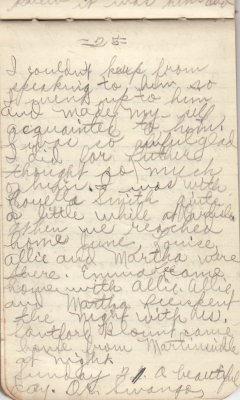 - 25 -
I couldn't keep from
speaking to him so
I went up to him
and made my self
acquainted to him.
I was so awful glad
I did for Luther
thought so much
of him. I was with
Louella Smith quite
a little while at
When we reached
home June, Louise,
Allie and Martha were
there. Emma came
home with Allie. Allie
and Martha spent
the night with us.
Blount came
home from Martinsville
at night.
Sunday A beautiful
day. Dr. Swango,